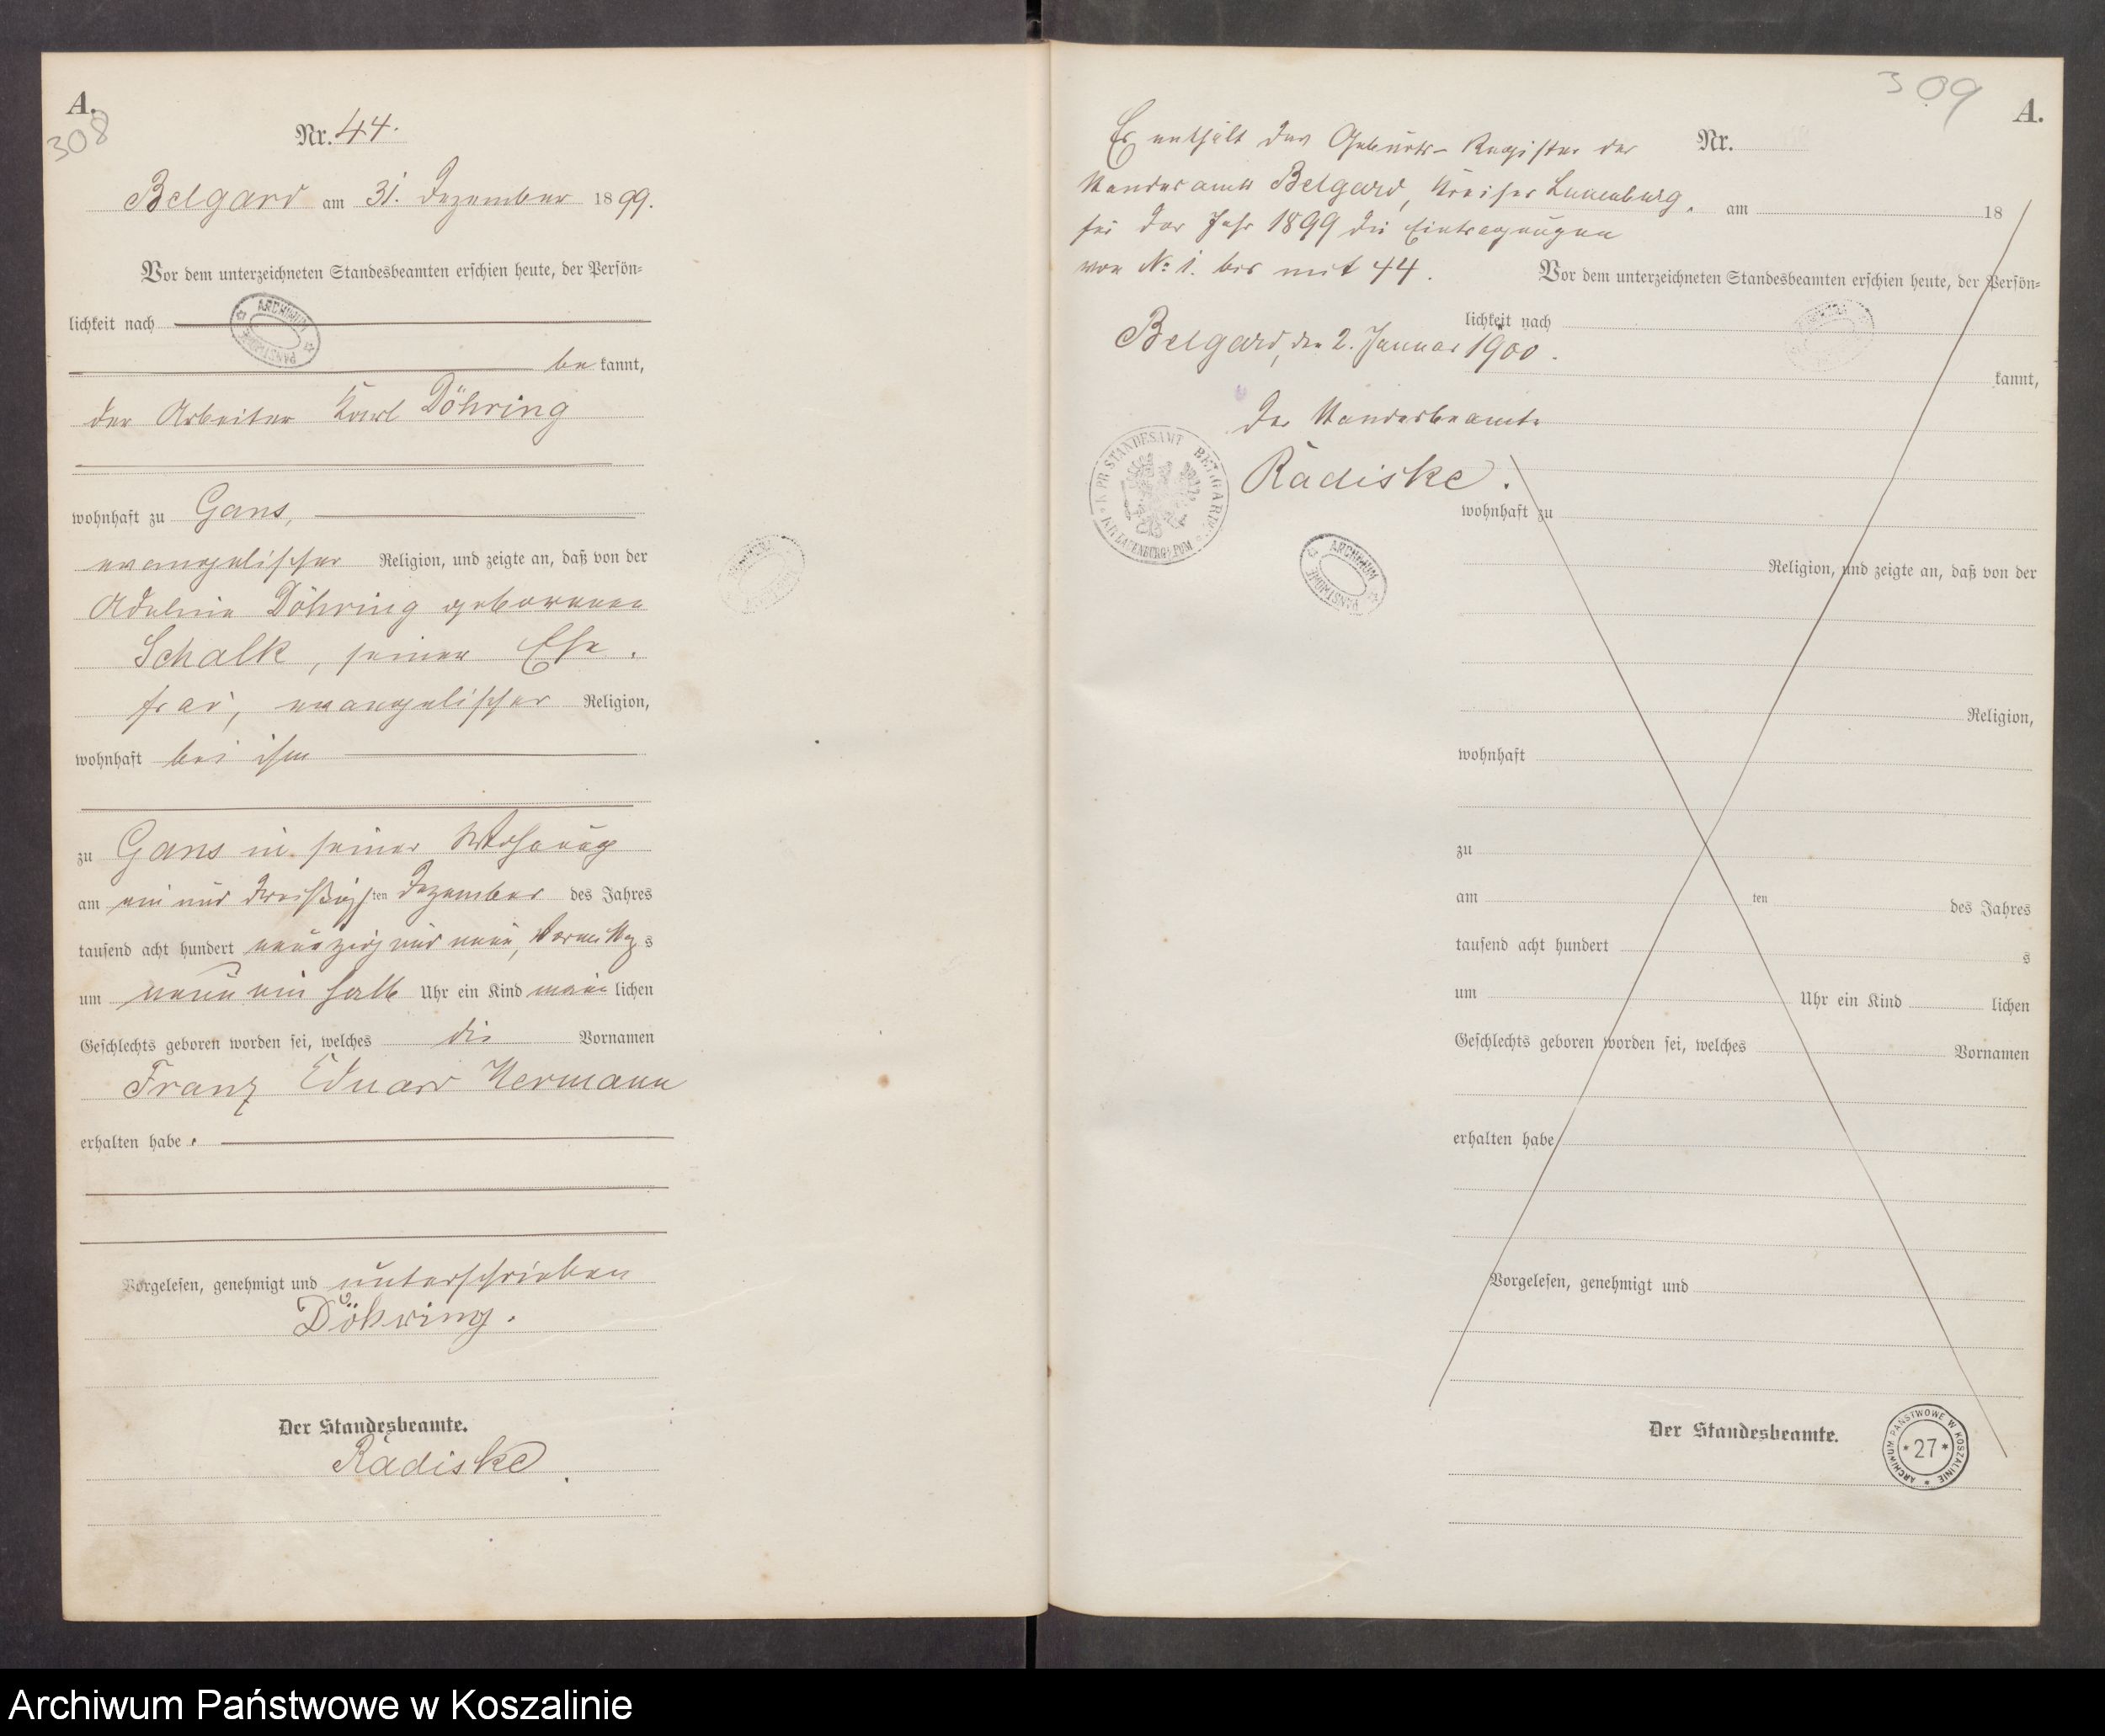 A.
308
Nr. 44.
Belgard am 31. Dezember 1899.
Vor dem unterzeichneten Standesbeamten erschien heute, der Persön-
lichkeit nach
be kannt,
der Arbeiter Karl Döhring
wohnhaft zu Gans,
evangelischer Religion, und zeigte an, daß von der
Adeline Döhring geborenen
Schalk, seiner Ehe.
frau, evangelischer Religion,
wohnhaft bei ihm
zu Gans in seiner Wohnung
am ein und dreißigsten Dezember des Jahres
tausend acht hundert neunzig und neun, Vormittags
um neun ein halb Uhr ein Kind männlichen
Geschlechts geboren worden sei, welches die Vornamen
Franz Eduard Hermann
erhalten habe.
Vorgelesen, genehmigt und unterschrieben
Döhring.
Der Standesbeamte.
Rädiske.
309
A.
Es enthält das Geburts-Register des
Standesamts Belgard, Kreises Lauenburg,
für das Jahr 1899 die Eintragungen
von No 1. bis mit 44.
Belgard, den 2. Januar 1900.
Der Standesbeamte
Rädiske.
K. PR. STANDESAMT BELGARD
KR. LAUENBURG I. POM
ARCHIWUM PAŃSTWOWE
Nr.
am 18
Vor dem unterzeichneten Standesbeamten erschien heute, der Persön-
lichkeit nach
kannt,
wohnhaft zu
Religion, und zeigte an, daß von der
Religion,
wohnhaft
zu
am ten des Jahres
tausend acht hundert s
um Uhr ein Kind lichen
Geschlechts geboren worden sei, welches Vornamen
erhalten habe
Vorgelesen, genehmigt und
Der Standesbeamte.
ARCHIWUM PAŃSTWOWE W KOSZALINIE
* 27 *
Archiwum Państwowe w Koszalinie